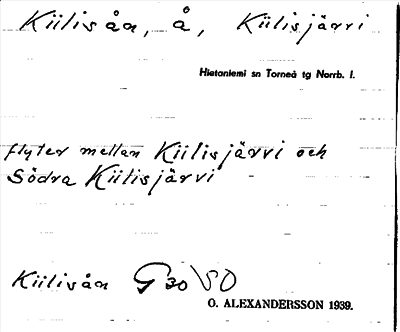 Kiilisån, å, Kiilisjärvi
Hietaniemi sn Torneå tg Norrb. l.
flyter mellan Kiilisjärvi och
Södra Kiilisjärvi
Kiilisån G 30 SO
O. ALEXANDERSSON 1939.